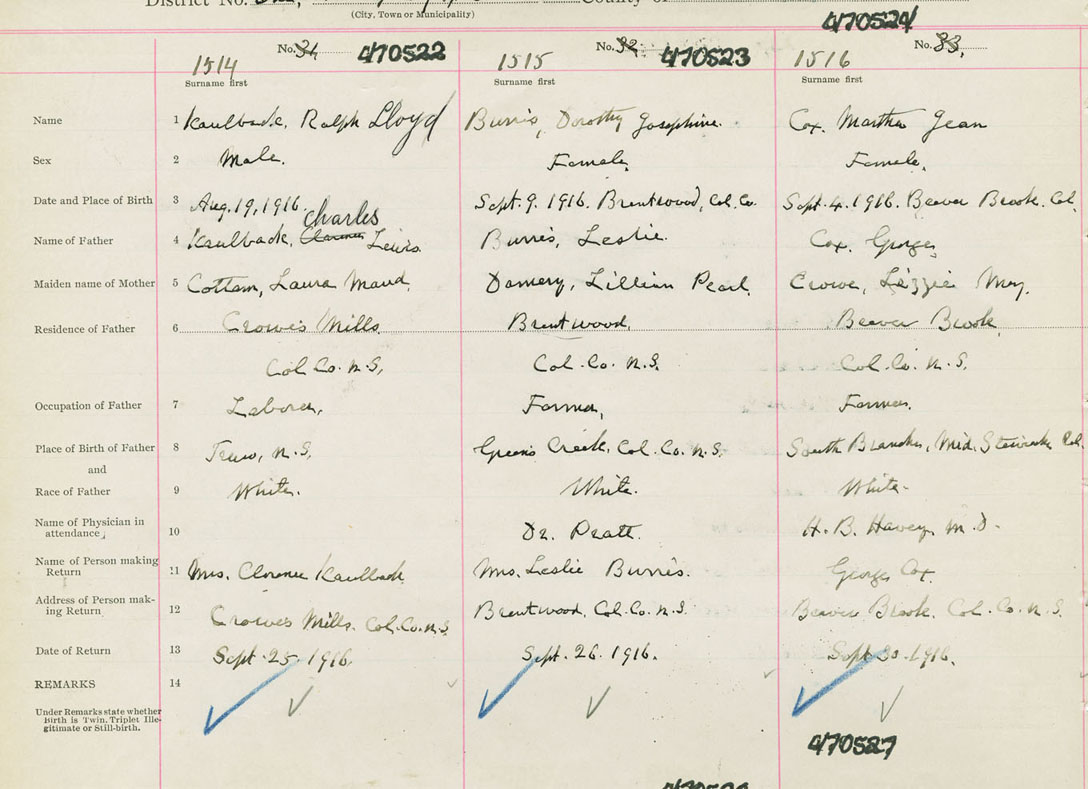 District No. One,
County of
(City, Town or Municipality)
470524
No. 31 470522
No. 32 470523
No. 33,
1514
1515
1516
Surname first
Surname first
Surname first
Name 1 Kaulback, Ralph Lloyd
Burris, Dorothy Josephine.
Cox. Martha Jean
Sex 2 Male.
Female,
Female,
Date and Place of Birth 3 Aug. 19, 1916.
Sept. 9. 1916. Brentwood, Col. Co.
Sept. 4. 1916. Beaver Brook. Col.
Charles
Name of Father 4 Kaulback, Clarence Lewis
Burris, Leslie.
Cox. George
Maiden name of Mother 5 Cottam, Laura Maud,
Damery, Lillian Pearl,
Crowe, Lizzie May.
Residence of Father 6 Crowes Mills
Brentwood,
Beaver Brook,
Col Co. N.S,
Col. Co. N.S.
Col. Co. N.S,
Occupation of Father 7 Laborer,
Farmer,
Farmer.
Place of Birth of Father 8 Truro, N.S,
Greens Creek, Col. Co. N.S,
South Branch, Mid. Stewiacke Col.
and
Race of Father 9 White.
White.
White.
Name of Physician in
attendance, 10
Dr. Pratt.
H. B. Havey, M.D.
Name of Person making
Return 11 Mrs. Clarence Kaulback
Mrs. Leslie Burris.
George Cox.
Address of Person mak-
ing Return 12 Crowes Mills. Col. Co. N.S
Brentwood, Col. Co. N.S.
Beaver Brook. Col. Co. N.S.
Date of Return 13 Sept. 25. 1916.
Sept. 26. 1916.
Sept 30. 1916.
REMARKS 14
Under Remarks state whether
Birth is Twin, Triplet Ille-
gitimate or Still-birth.
470527